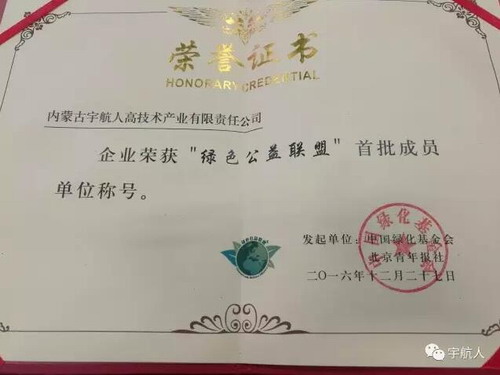 荣誉证书
HONORARY CREDENTIAL
内蒙古宇航人高技术产业有限责任公司
企业荣获"绿色公益联盟"首批成员
单位称号。
发起单位：中国绿化基金会
北京青年报社
二〇一六年十二月二十七日
宇航人